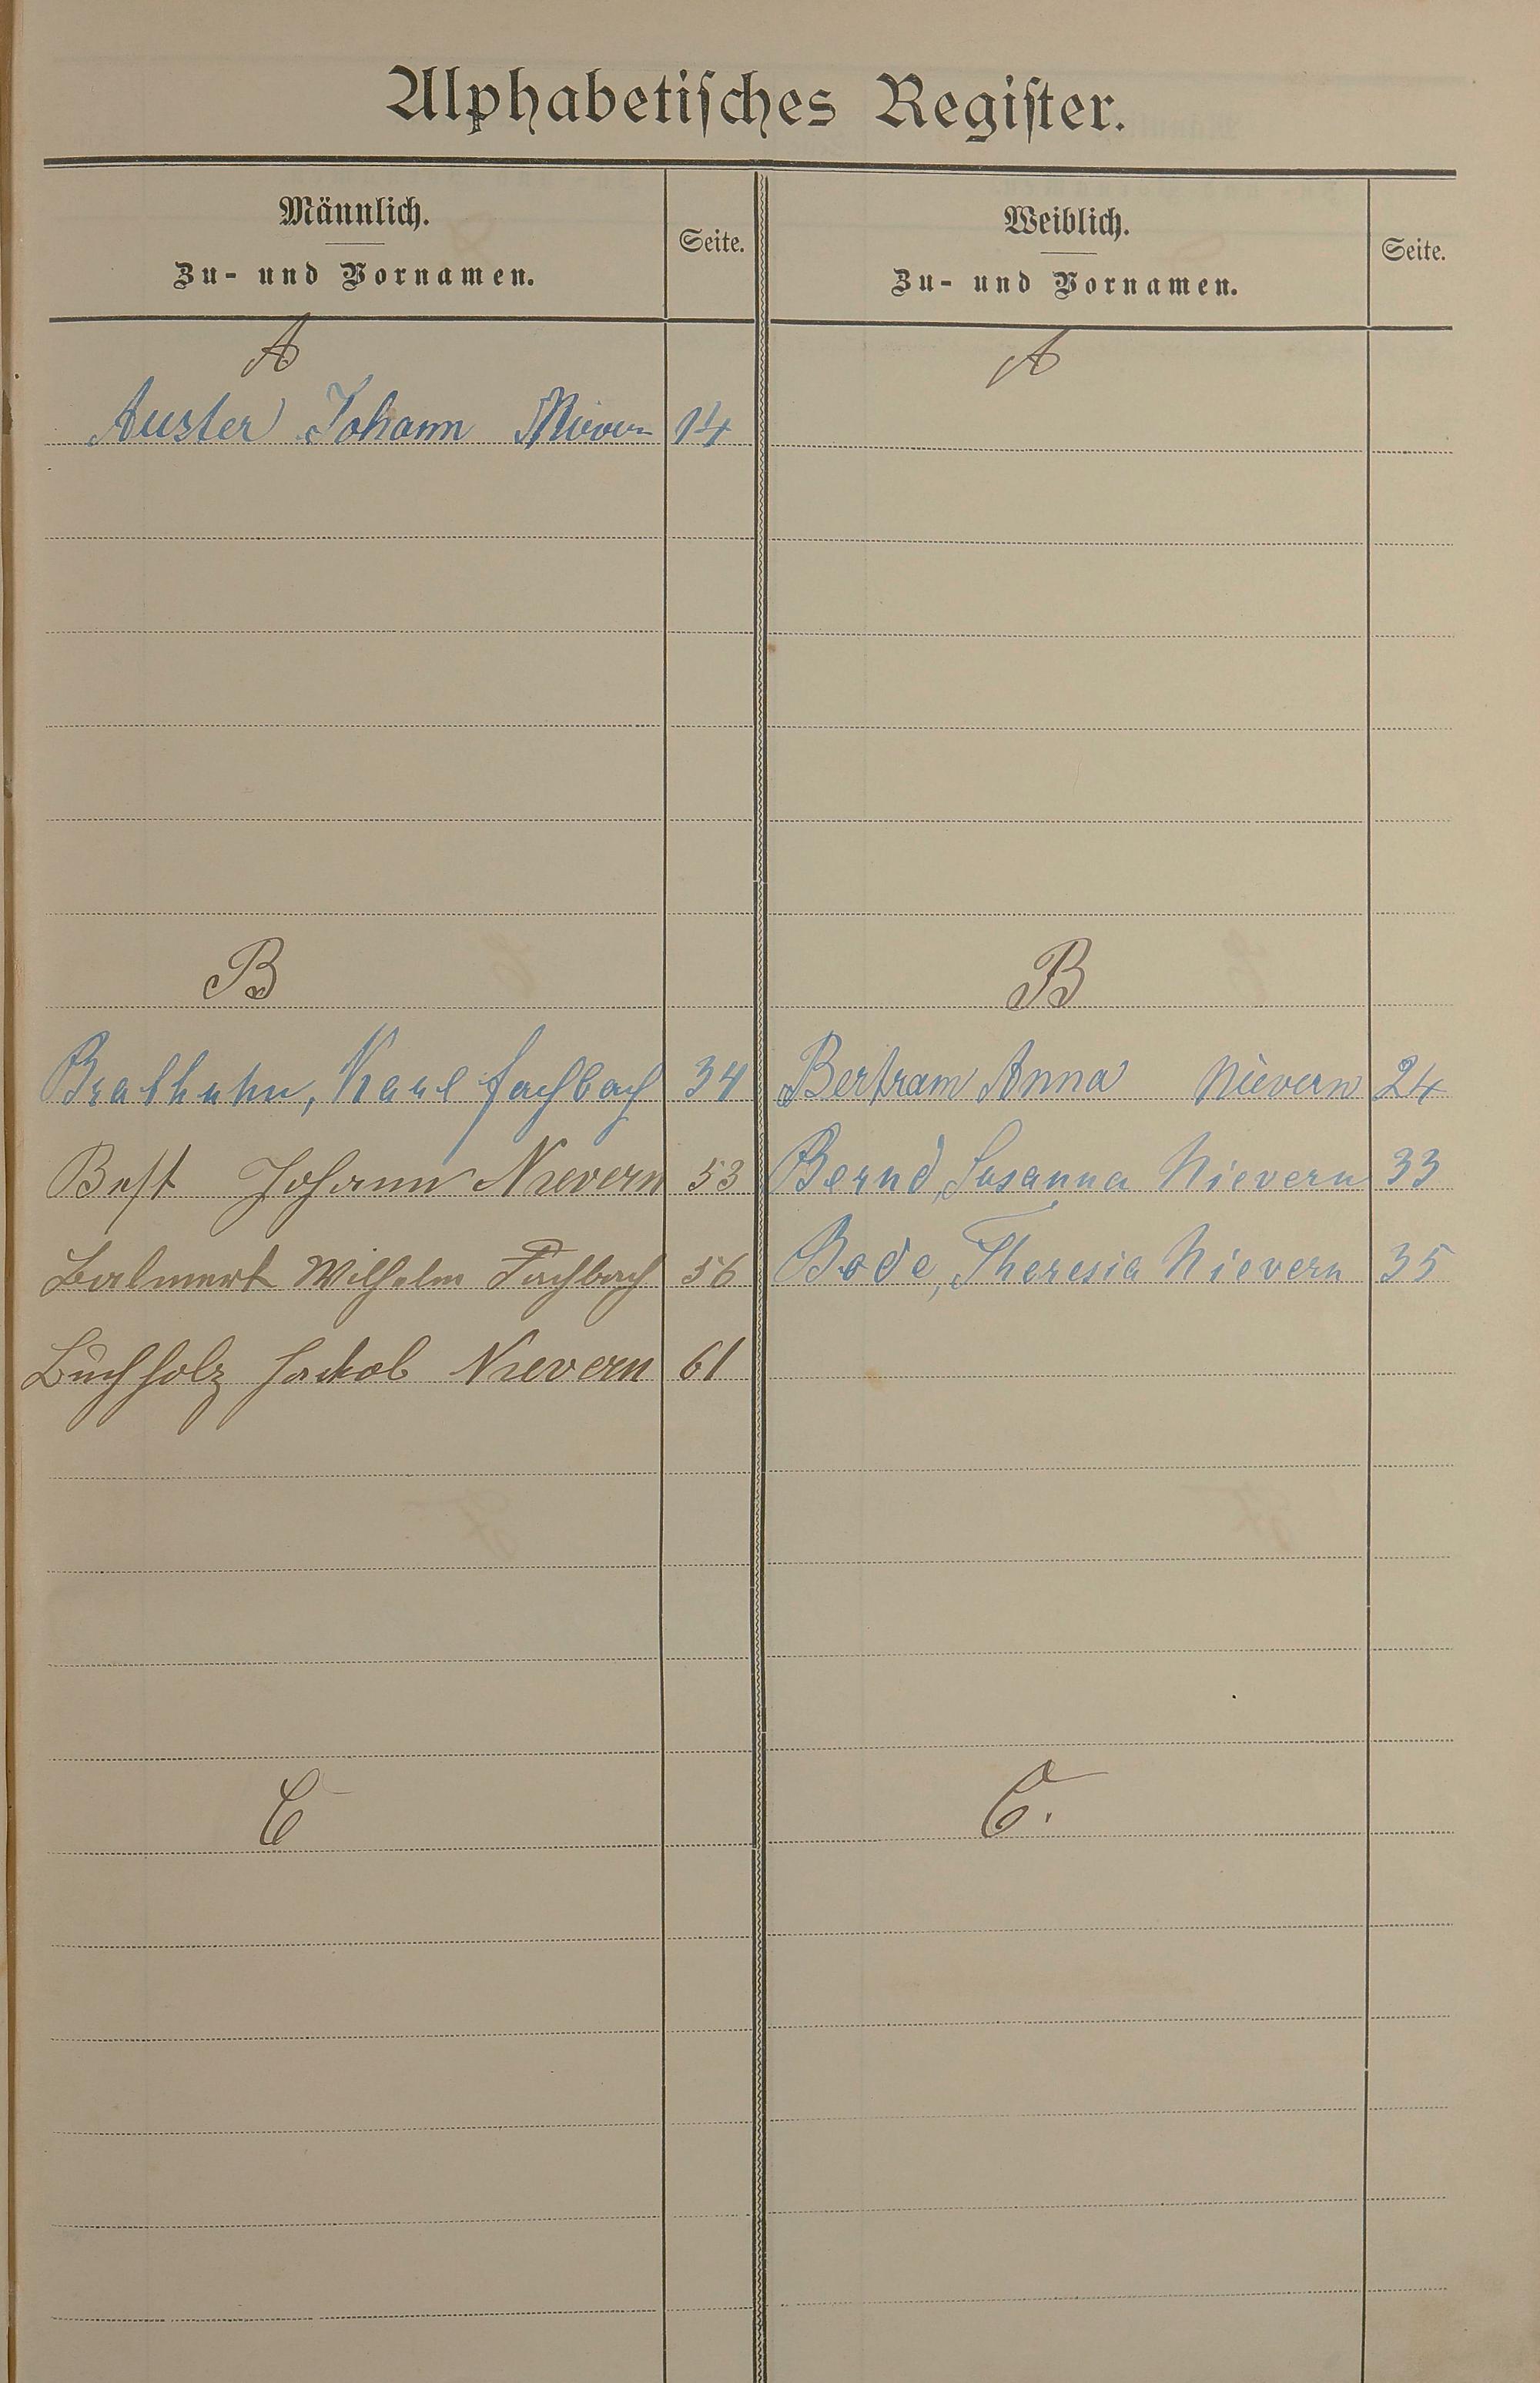 Alphabetisches Register.
Männlich.
Zu- und Vornamen.
Seite.
Weiblich.
Zu- und Vornamen.
Seite.
A
A
Auster Johann Nievern 14
B
B
Brathuhn, Karl Fachbach 34
Bertram Anna Nievern 24
Best Johann Nievern 53
Bernd, Susanna Nievern 33
Wilhelm Fachbach 56
Bode, Theresia Nievern 35
Buchholz Jakob Nievern 61
C
C.